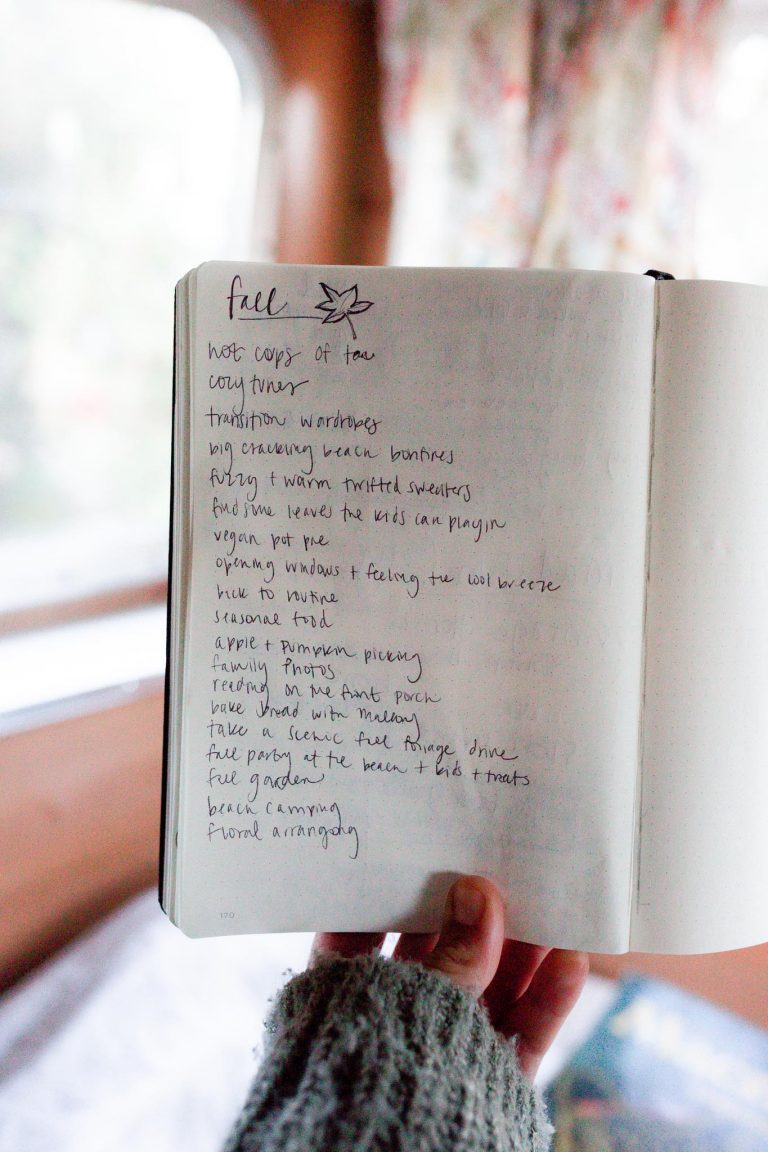 fall
hot cups of tea
cozy tunes
transition wardrobes
big crackling beach bonfires
fuzzy + warm thrifted sweaters
find some leaves the kids can play in
vegan pot pie
opening windows + feeling the cool breeze
back to routine
seasonal food
apple + pumpkin picking
family photos
reading on the front porch
bake bread with
take a scenic fall foliage drive
fall party at the beach + kids + treats
fall garden
beach camping
floral arranging
170